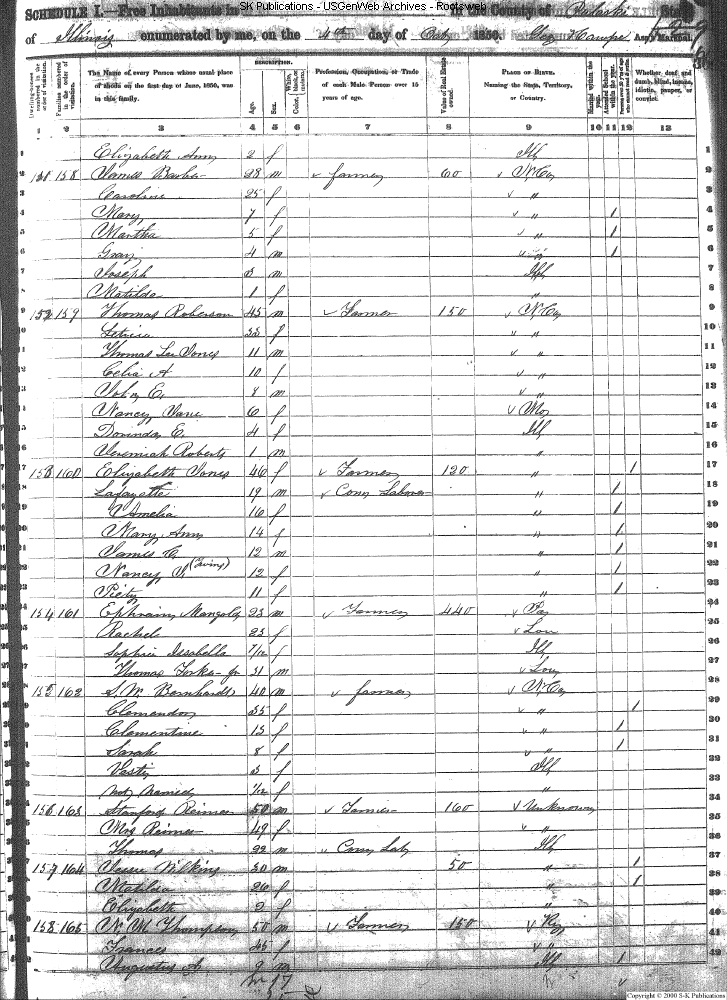 SK Publications - USGenWeb Archives - Rootsweb
SCHEDULE I.—Free Inhabitants in in the County of Pulaski State
of Illinois enumerated by me, on the 4th day of Oct 1850. Ass't Marshal.
DESCRIPTION.
Dwelling-houses numbered in the order of visitation. Families numbered in the order of visitation. The Name of every Person whose usual place of abode on the first day of June, 1850, was in this family. Age. Sex. White, black, or mulatto. Color, Profession, Occupation, or Trade of each Male Person over 15 years of age. Value of Real Estate owned. PLACE OF BIRTH. Naming the State, Territory, or Country. Married within the year. Attended School within the year. Persons over 20 y'rs of age who cannot read & write. Whether deaf and dumb, blind, insane, idiotic, pauper, or convict.
1 2 3 4 5 6 7 8 9 10 11 12 13
1 Elizabeth Ann 2 f Ill 1
2 151 158 James Barber 28 m farmer 60 N. Ca 2
3 Caroline 25 f " 3
4 Mary 7 f " 1 4
5 Martha 5 f " 1 5
6 Gray 4 m " 1 6
7 Joseph 3 m Ill 7
8 Matilda 1 f " 8
9 152 159 Thomas Roberson 45 m Farmer 150 N. Ca 9
10 33 f " 10
11 Thomas Lee Jones 11 m " 11
12 Celia A 10 f " 12
13 John E. 8 m " 13
14 Nancy Jane 6 f Mo 14
15 Dorinda E. 4 f Ill 15
16 Jeremiah Roberts 1 m " 16
17 153 160 Elizabeth Jones 46 f Farmer 120 " 1 17
18 Lafayette 19 m Com Laborer " 1 18
19 Amelia 16 f " 1 19
20 Mary Ann 14 f " 1 20
21 James C. 12 m " 1 21
22 Nancy J. (twins) 12 f " 1 22
23 Piety 11 f " 1 23
24 154 161 Ephraim Mangold 23 m Farmer 440 Pa 24
25 Rachel 23 f Lou 25
26 Sophia Issabella 7/12 f Ill 26
27 Thomas 31 m Lou 27
28 155 162 S. W. Bernhardt 40 m farmer N. Ca 28
29 Clemendon 35 f " 1 29
30 Clementine 13 f " 1 30
31 Sarah 8 f " 1 31
32 Vasti 3 f Ill 32
33 not named 1/12 f " 33
34 156 163 Stanford Reimer 50 m Farmer 160 Unknown 34
35 Mos Reimer 49 f " 35
36 Thomas 22 m Com Lab Ill 36
37 157 164 Jesse Wilkins 30 m 50 " 1 37
38 Matilda 26 f " 1 38
39 Elizabeth 2 f " 39
40 158 165 N. M. Thompson 50 m Farmer 150 Ky 40
41 Frances 45 f " 41
42 Augustus A 9 m Ill 1 42
Copyright © 2000 S-K Publications